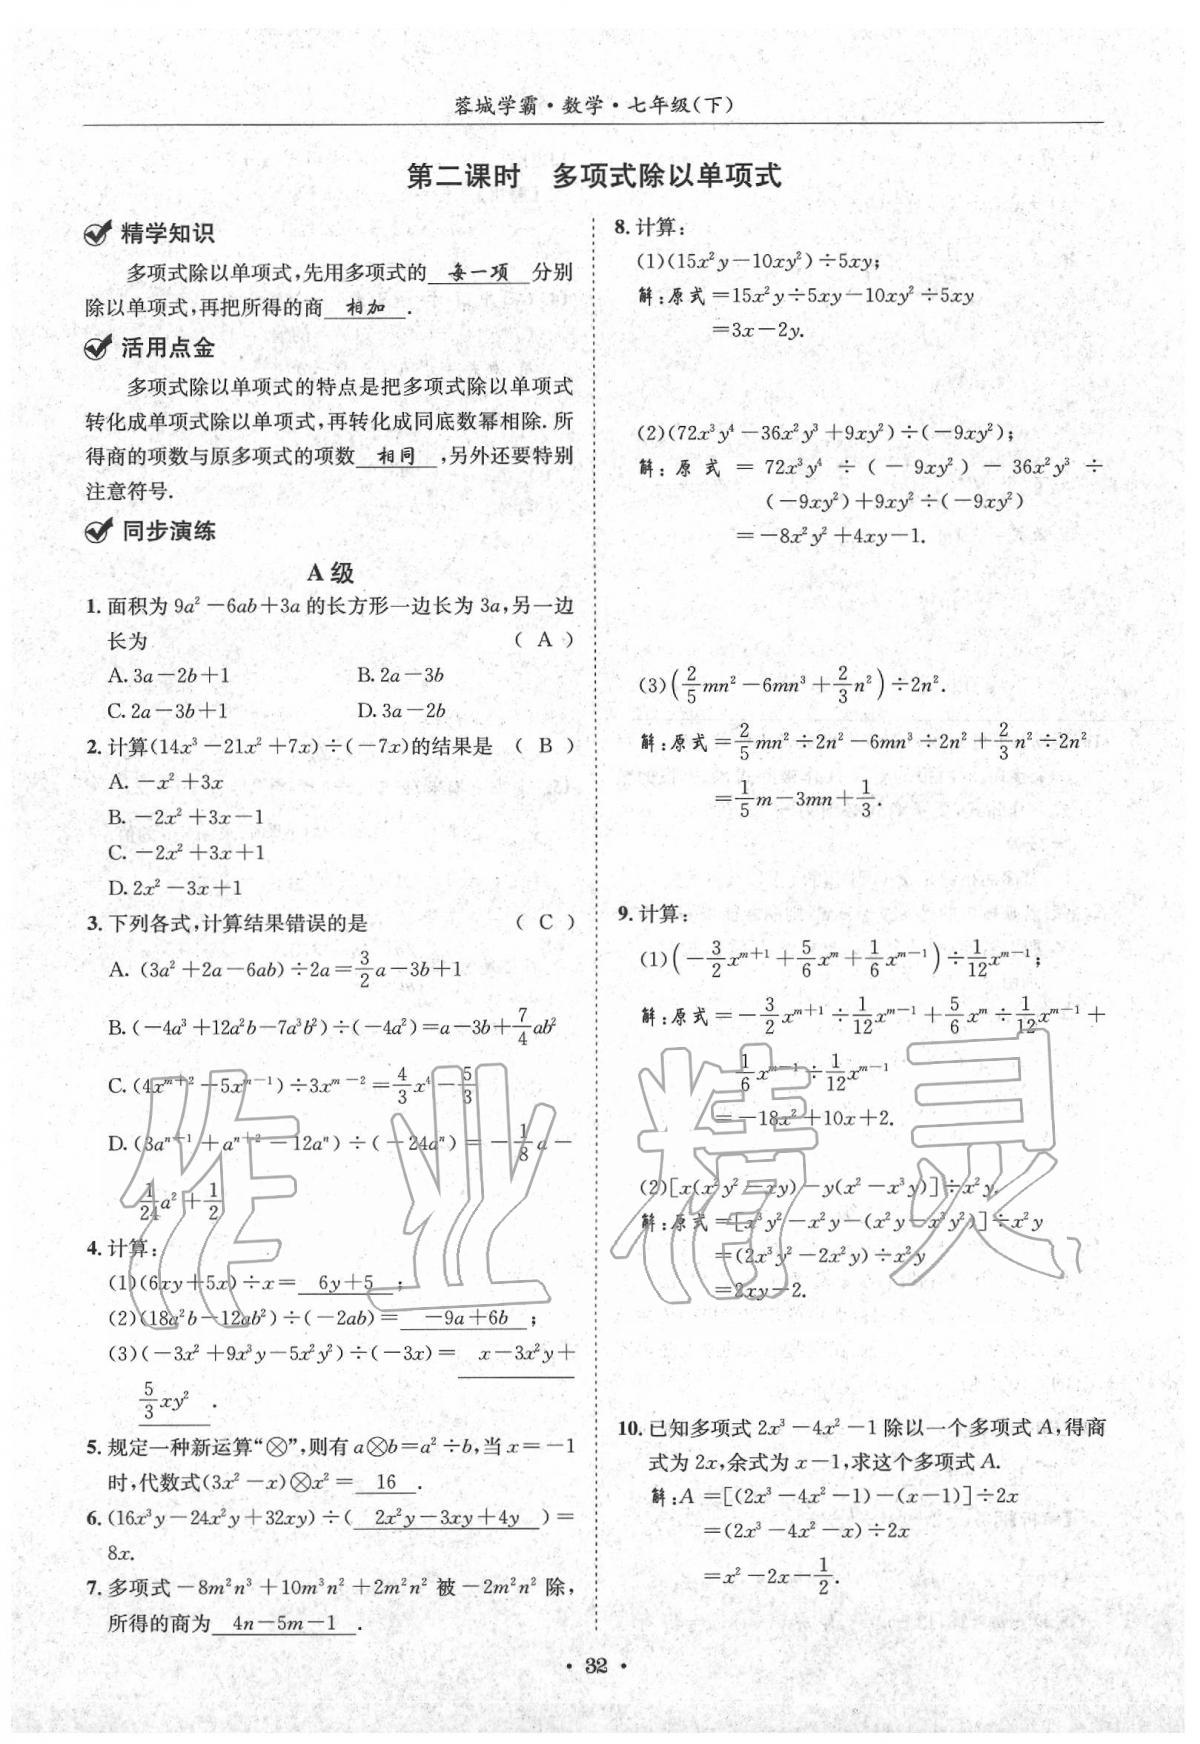 蓉城学霸·数学·七年级(下)
第二课时　多项式除以单项式
精学知识
多项式除以单项式,先用多项式的 每一项 分别
除以单项式,再把所得的商 相加 .
活用点金
多项式除以单项式的特点是把多项式除以单项式
转化成单项式除以单项式,再转化成同底数幂相除. 所
得商的项数与原多项式的项数 相同 ,另外还要特别
注意符号.
同步演练
A 级
1. 面积为 9a²－6ab＋3a 的长方形一边长为 3a,另一边
长为 ( A )
A. 3a－2b＋1 B. 2a－3b
C. 2a－3b＋1 D. 3a－2b
2. 计算(14x³－21x²＋7x)÷(－7x)的结果是 ( B )
A. －x²＋3x
B. －2x²＋3x－1
C. －2x²＋3x＋1
D. 2x²－3x＋1
3. 下列各式,计算结果错误的是 ( C )
A. (3a²＋2a－6ab)÷2a＝3/2 a－3b＋1
B. (－4a³＋12a²b－7a³b²)÷(－4a²)＝a－3b＋7/4 ab²
C. (4xᵐ⁺²－5xᵐ⁻¹)÷3xᵐ⁻²＝4/3 x⁴－5/3
D. (3aⁿ⁺¹＋aⁿ⁺²－12aⁿ)÷(－24aⁿ)＝－1/8 a－
1/24 a²＋1/2
4. 计算:
(1)(6xy＋5x)÷x＝ 6y＋5 ;
(2)(18a²b－12ab²)÷(－2ab)＝ －9a＋6b ;
(3)(－3x²＋9x³y－5x²y²)÷(－3x)＝ x－3x²y＋
5/3 xy² .
5. 规定一种新运算“⊗”,则有 a⊗b＝a²÷b,当 x＝－1
时,代数式(3x²－x)⊗x²＝ 16 .
6. (16x³y－24x²y＋32xy)÷( 2x²y－3xy＋4y )＝
8x.
7. 多项式－8m²n³＋10m³n²＋2m²n² 被－2m²n² 除,
所得的商为 4n－5m－1 .
8. 计算:
(1)(15x²y－10xy²)÷5xy;
解:原式＝15x²y÷5xy－10xy²÷5xy
＝3x－2y.
(2)(72x³y⁴－36x²y³＋9xy²)÷(－9xy²);
解:原式＝72x³y⁴÷(－9xy²)－36x²y³÷
(－9xy²)＋9xy²÷(－9xy²)
＝－8x²y²＋4xy－1.
(3)(2/5 mn²－6mn³＋2/3 n²)÷2n².
解:原式＝2/5 mn²÷2n²－6mn³÷2n²＋2/3 n²÷2n²
＝1/5 m－3mn＋1/3.
9. 计算:
(1)(－3/2 xᵐ⁺¹＋5/6 xᵐ＋1/6 xᵐ⁻¹)÷1/12 xᵐ⁻¹;
解:原式＝－3/2 xᵐ⁺¹÷1/12 xᵐ⁻¹＋5/6 xᵐ÷1/12 xᵐ⁻¹＋
1/6 xᵐ⁻¹÷1/12 xᵐ⁻¹
＝－18x²＋10x＋2.
(2)[x(x²y²－xy)－y(x²－x³y)]÷x²y.
解:原式＝[x³y²－x²y－(x²y－x³y²)]÷x²y
＝(2x³y²－2x²y)÷x²y
＝2xy－2.
10. 已知多项式 2x³－4x²－1 除以一个多项式 A,得商
式为 2x,余式为 x－1,求这个多项式 A.
解:A＝[(2x³－4x²－1)－(x－1)]÷2x
＝(2x³－4x²－x)÷2x
＝x²－2x－1/2.
· 32 ·
作业精灵